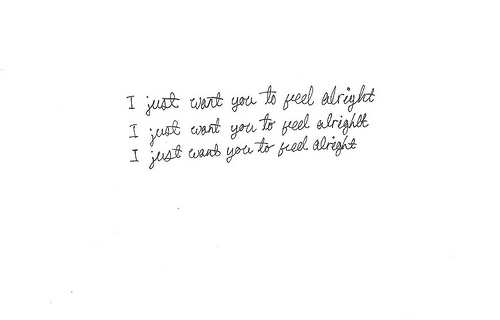 I just want you to feel alright
I just want you to feel alright
I just want you to feel alright